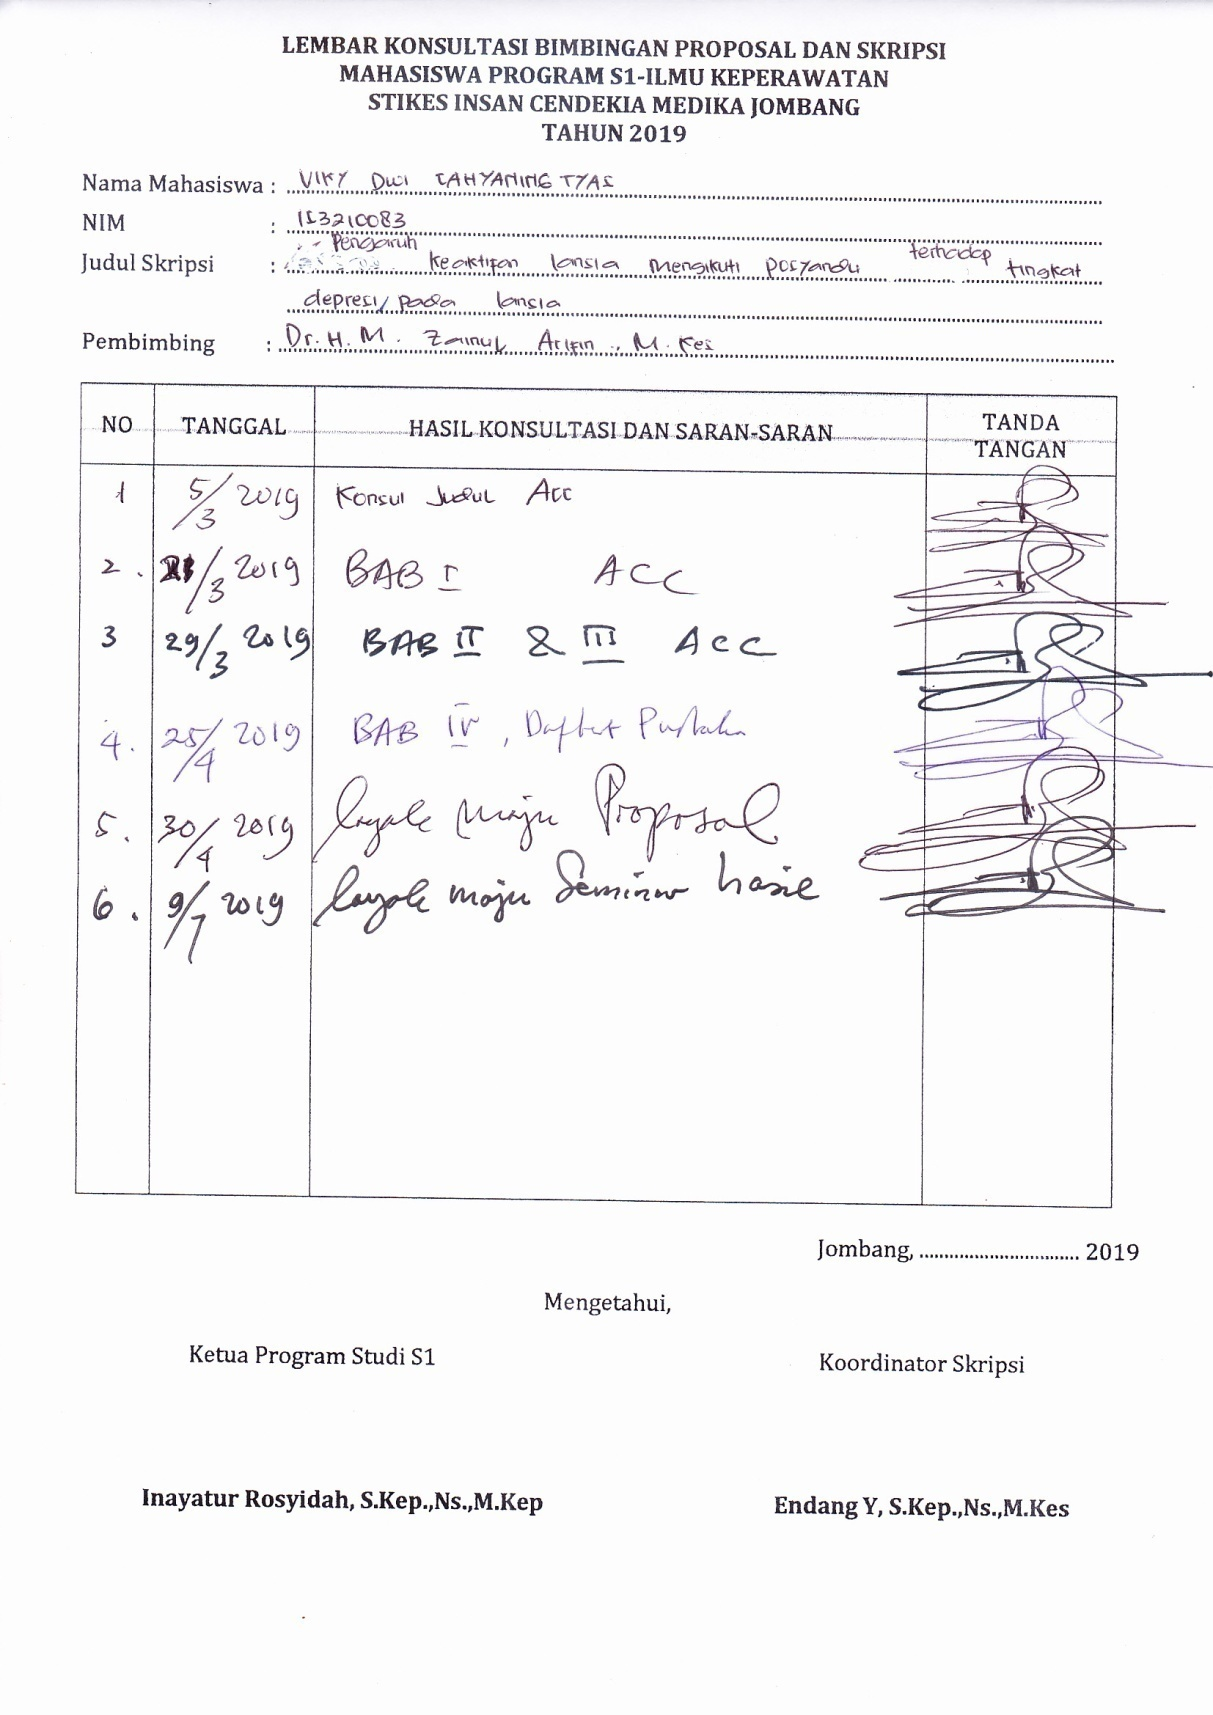 LEMBAR KONSULTASI BIMBINGAN PROPOSAL DAN SKRIPSI
MAHASISWA PROGRAM S1-ILMU KEPERAWATAN
STIKES INSAN CENDEKIA MEDIKA JOMBANG
TAHUN 2019
Nama Mahasiswa : VIKY DWI CAHYANING TYAS
NIM : 153210083
Pengaruh
Judul Skripsi : keaktifan lansia mengikuti posyandu terhadap tingkat
depresi pada lansia
Pembimbing : Dr. H. M. Zainul Arifin., M. Kes
NO TANGGAL HASIL KONSULTASI DAN SARAN-SARAN TANDA TANGAN
1 5/3 2019 Konsul Judul Acc
2. /3 2019 BAB I ACC
3 29/3 2019 BAB II & III ACC
4. 25/4 2019 BAB IV, Daftar Pustaka
5. 30/4 2019 layak maju Proposal
6. 9/7 2019 layak maju Seminar hasil
Jombang, ................................ 2019
Mengetahui,
Ketua Program Studi S1 Koordinator Skripsi
Inayatur Rosyidah, S.Kep.,Ns.,M.Kep Endang Y, S.Kep.,Ns.,M.Kes